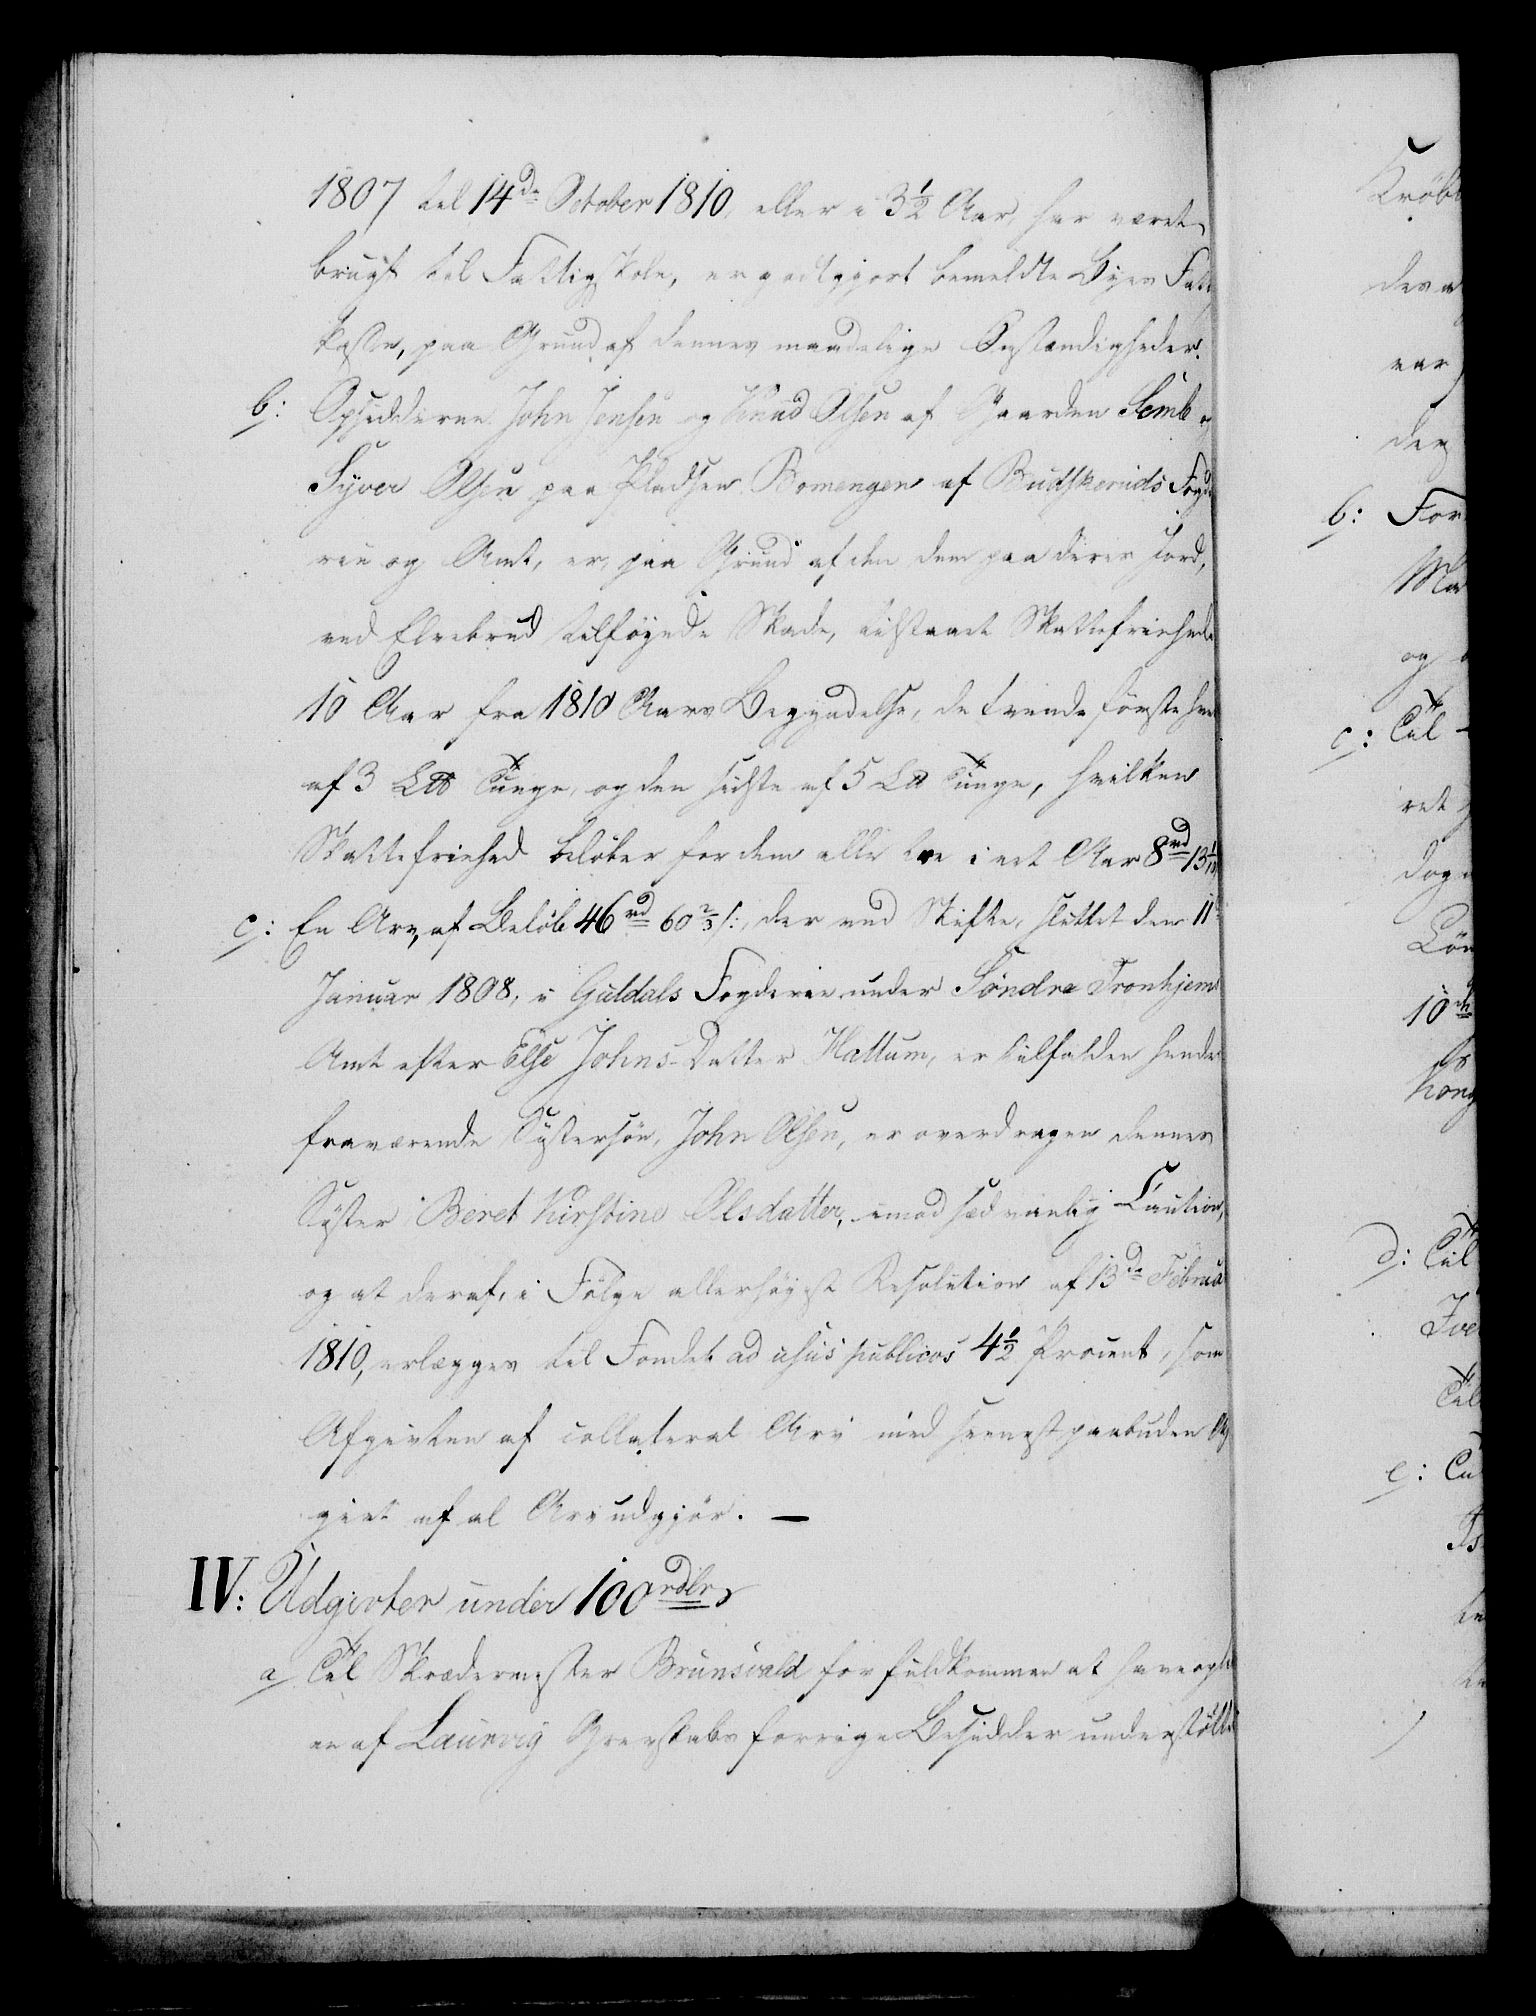 1807 til 14de October 1810, eller i 3½ Aar, har været
brugt til Fattigskole, er godtgjort bemeldte Byes Fatt
kasse, paa Grund af dennes maadelige Omstændigheder.
b: Opsidderne John Jensen og Knud Olsen af Gaarden Semb og
Syver Olsen paa Pladsen Bomengen af Budskeruds Fogde
rie og Amt, er, paa Grund af den dem paa deres Jord,
ved Elvebrud tilføyede Skade, tilstaaet Skattefriehed
10 Aar fra 1810 Aars Begyndelse, de tvende første hver
af 3 L℔ Tunge, og den sidste af 5 L℔ Tunge, hvilken
Skattefriehed beløber for dem alle tre i eet Aar 8rd 13
c: En Arv, af Beløb 46rd 60⅔ s:, der ved Skifte, sluttet den 11
Januar 1808, i Guldals Fogderie under Søndre Tronhjems
Amt efter Else Johns-Datter Hattum, er tilfalden hendes
fraværende Søstersøn, John Olsen, er overdragen dennes
Søster Beret Kirstine Olsdatter, imod sædvanlig Caution,
og at deraf, i Følge allerhøyeste Resolution af 13de Februa
1810, erlægges til Fondet ad usus publicos 4½ Procent, som
Afgivten af collateral Arv med seenest paabuden Af
givt af al Arv udgjør. —
IV: Udgivter under 100 rdlr
a Til Skrædermester Brunsvald for fuldkommen at have opl
en af Laurvig Grevskabs forrige Besidder understøtte
Krøb
des a
var
der
b: For
Ma
og
c: Til
ret
dog
Løn
10de
Kong
d: Til
Ive
Til
e: Til